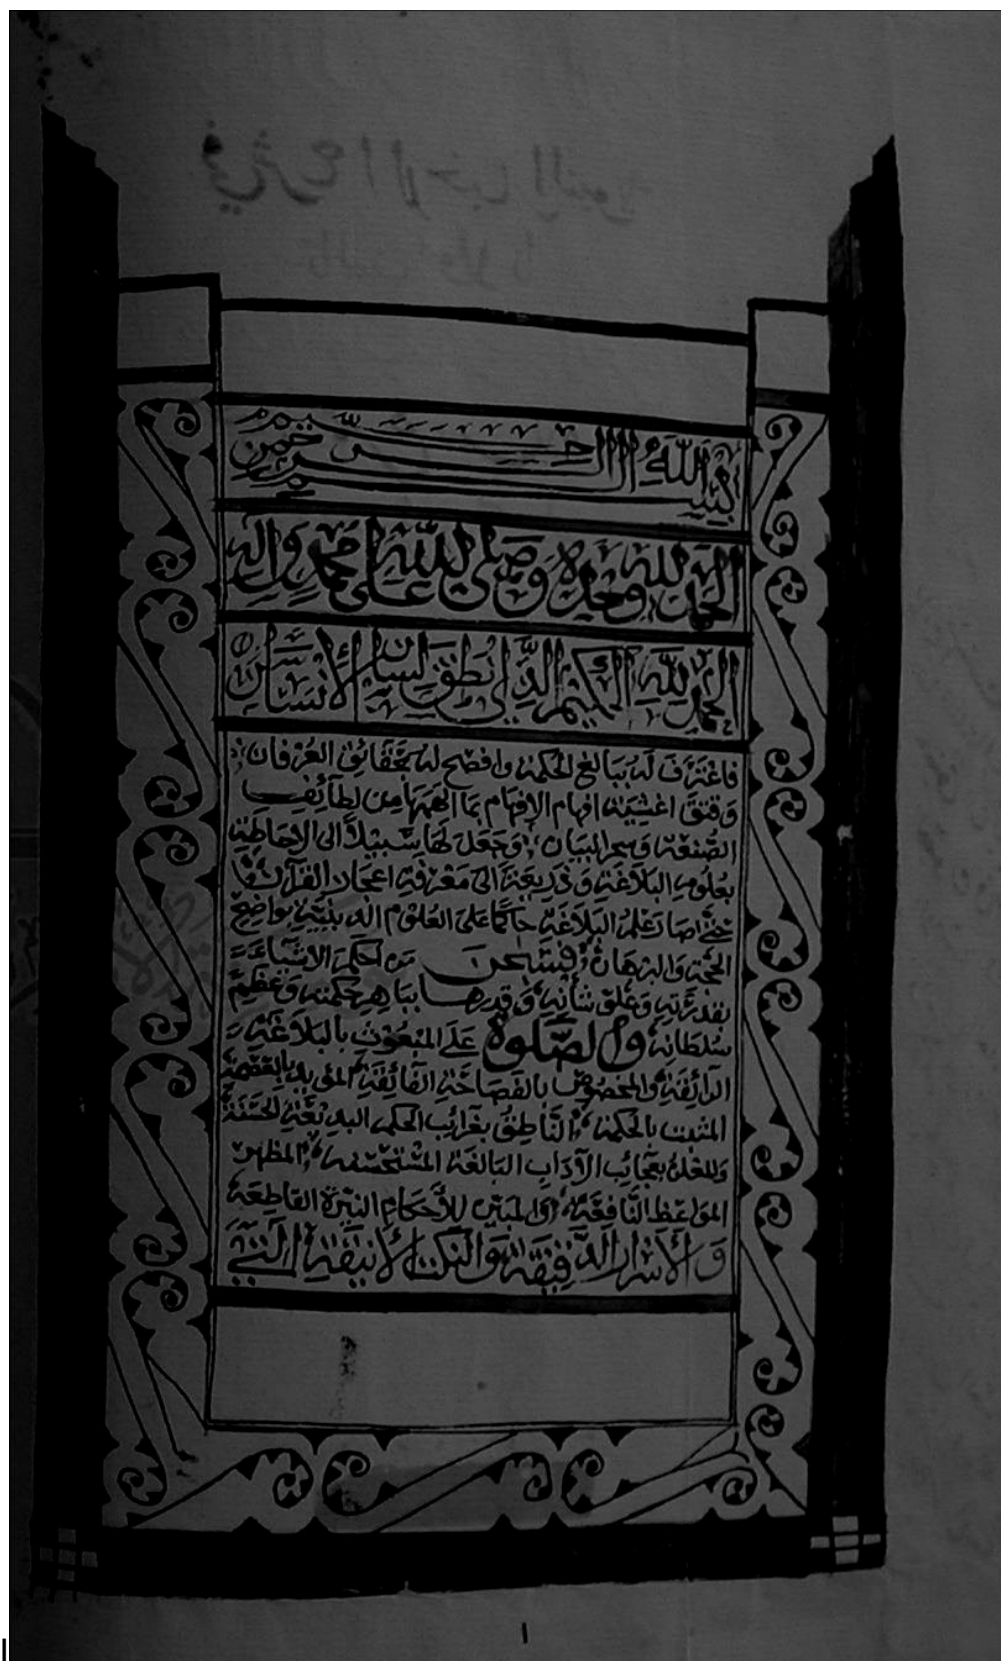 في شرح الاخبار النبوية
بسم الله الرحمن الرحيم
الحمد لله وحده وصلى الله على محمد واله
الحمد لله الحكيم الذي انطق لسان الانسان
فاغترف له ببالغ الحكمة وافصح له بحقائق العرفان
وفتق اغشية افهام الافهام بما الهمها من لطائف
الصنعة وسحر البيان وجعل لها سبيلاً الى الاحاطة
بعلوم البلاغة وذريعة الى معرفة اعجاز القرآن
حتى صار علم البلاغة حاكما على العلوم الدينية بواضح
الحجة والبرهان فسبحان من احكم الاشياء
بقدرته وعلو شأنه وقدرها بباهر حكمته وعظيم
سلطانه والصلوة على المبعوث بالبلاغة
الرائقة والمخصوص بالفصاحة الفائقة المؤيد بالعصمة
المثبت بالحكمة الناطق بغرائب الحكم البديعة الحسنة
بعجائب الآداب البالغة المستحسنة المظهر
المواعظ النافعة والمبين للأحكام النيرة القاطعة
والأسرار الدقيقة والنكت الأنيقة النبي
١